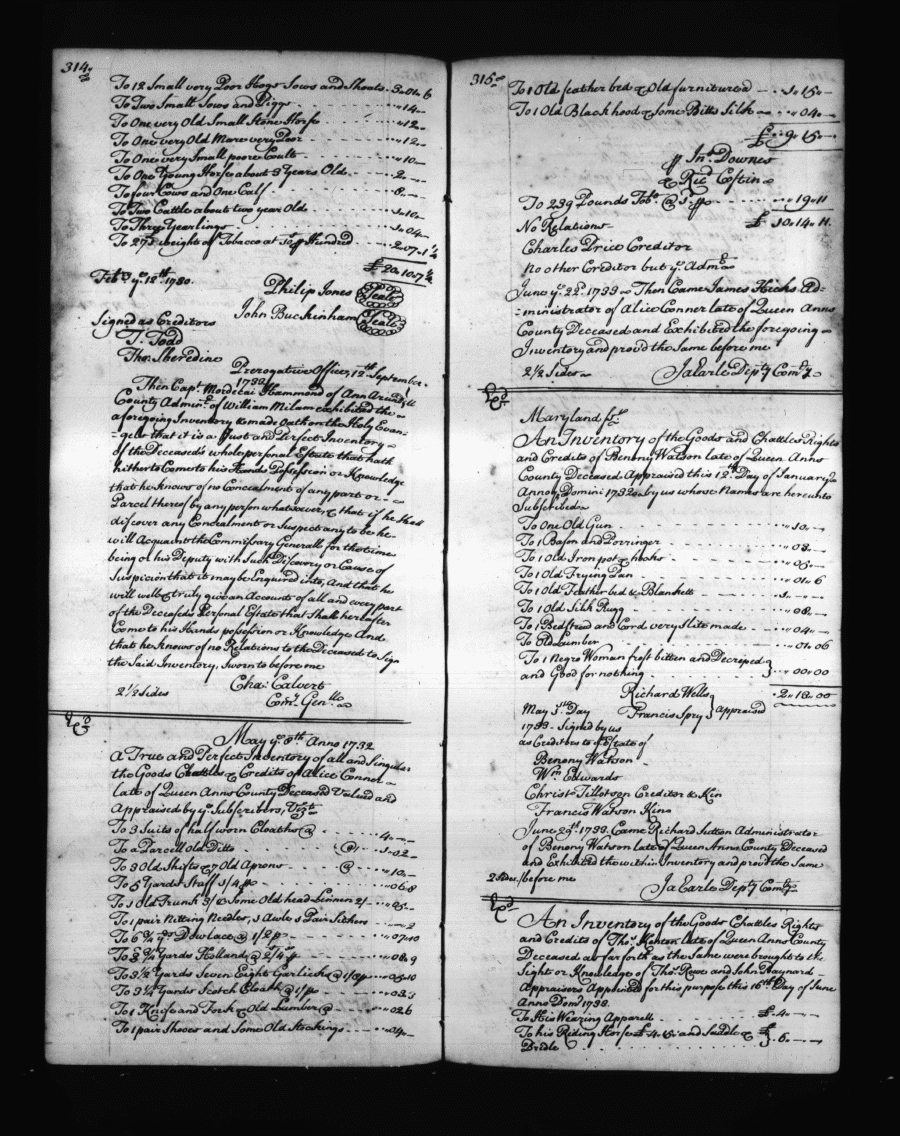 314
To 12 Small very Poor Hogs Sows and Shoats 3..01..6
To Two Small Sows and Piggs ..14..
To One very Old Small Stone Horse ..12..
To One very Old Mare very Poor ..12..
To One very Small poore Coult ..10..
To One Young Horse about 3 Years Old 2..
To four Cows and One Calf 8..
To Two Cattle about two year Old 1..10..
To Three Yearlings 1..04..
To 275 weight of Tobacco at Hundred 2..07..1¼
£ 20..10..7¼
Feb. ye. 12th. 1730.
Philip Jones (Seale)
John Buckinham (Seale)
Signed as Creditors
T. Todd
Tho. Sheredine
Prerogative Office, 12th. September
1733
Then Capt. Mordecai Hammond of Ann Arundell
County Admin. of William Milam exhibited the
aforegoing Inventory & made Oath on the Holy Evan-
-gels that it is a Just and Perfect Inventory
of the Deceased's whole personal Estate that hath
hitherto Come to his Hands Possession or Knowledge
that he knows of no Concealment of any part or
Parcel thereof by any person whatsoever, & that if he Shall
discover any Concealment or Suspect any to be he
will Acquaint the Commissary Generall for the time
being or his Deputy with Such Discovery or Cause of
Suspicion that it may be Enquired into, And that he
will well & truly give an Account of all and every part
of the Deceaseds Personal Estate that Shall hereafter
Come to his Hands possession or Knowledge And
that he Knows of no Relations to the Deceased to Sign
the Said Inventory, Sworn to before me
2½ Sides Cha. Calvert
Com.y Gen.ll
Exd
May ye. 8th. Anno 1732
A True and Perfect Inventory of all and Singular
the Goods Chattles & Credits of Alice Conner
late of Queen Anns County Deceased Valued and
Appraised by ye. Subscribers, Vizt
To 3 Suits of half worn Cloaths @ 4..
To a Parcell Old Ditto @ 1..02..
To 3 Old Shifts & 7 Old Aprons @ ..10..
To 5 Yards Stuff 1/4 p ..06..8
To 1 Old Trunk 3/ & Some Old head Linnen 2/ ..05..
To 1 pair Nitting Needles, 3 Awls & Pair Sithers ..2
To 6¾ yds Dowlace @ 1/2 p ..07..10
To 3¾ Yards Holland @ 2/4 p ..08..9
To 3½ Yards Seven Eights Garlick @ 1/8 p ..05..10
To 3¼ Yards Scotch Cloath @ 1/ p ..03..3
To 1 Knife and Fork & Old Lumber @ ..02..6
To 1 pair Shoes and Some Old Stockings ..04..
315
To 1 Old feather bed & Old furniture @ 1..15..
To 1 Old Black hood & Some Bitts Silk ..04..
£ ..9..15..
p Jno. Downes
& Ricd. Costin
To 239 Pounds Tobo. @ ..19..11
No Relations £ 10..14..11
Charles Price Creditor
No other Creditor but ye. Adm.
June ye. 22d. 1733 Then Came James Hicks Ad-
-ministrator of Alice Conner late of Queen Anns
County Deceased and Exhibited the foregoing
Inventory and prov'd the Same before me
2½ Sides Ja Earle Depty Com.ry
Exd
Maryland
An Inventory of the Goods and Chattles Rights
and Credits of Benony Watson late of Queen Anns
County Deceased Appraised this 12th. Day of January
Annoq Domini 1732 by us whose Names are hereunto
Subscribed
To One Old Gun ..10..
To 1 Bason and Porringer ..03..
To 1 Old Iron pot & hooks ..05..
To 1 Old Frying Pan ..01..6
To 1 Old Feather bed & Blankett 1..
To 1 Old Silk Rugg ..08..
To 1 Bedstead and Cord very Slite made ..04..
To Old Lumber ..01..06
To 1 Negro Woman frost bitten and Decreped
and Good for nothing ..00..00
2..18..00
Richard Wells
Francis Spry } Appraised
May 1st Day
1733. Signed by us
as Creditors to ye. Estate of
Benony Watson
Wm. Edwards
Christ. Tillotson Creditor & Kin
Francis Watson Kin
June 29th. 1733. Came Richard Sutton Administrator
of Benony Watson late of Queen Anns County Deceased
and Exhibited the within Inventory and prov'd the Same
2 Sides / before me Ja Earle Depty Com.ry
Exd
An Inventory of the Goods Chattles Rights
and Credits of Tho. late of Queen Anns County
Deceased as far forth as the Same were brought to the
Sight or Knowledge of Tho. Rowe and John Haynard
Appraisers Appointed for this purpose this 16th Day of June
Anno Dom. 1733.
To His Wearing Apparell £..4..
To his Riding Horse £4..15.. and Saddle &
Bridle £..6..